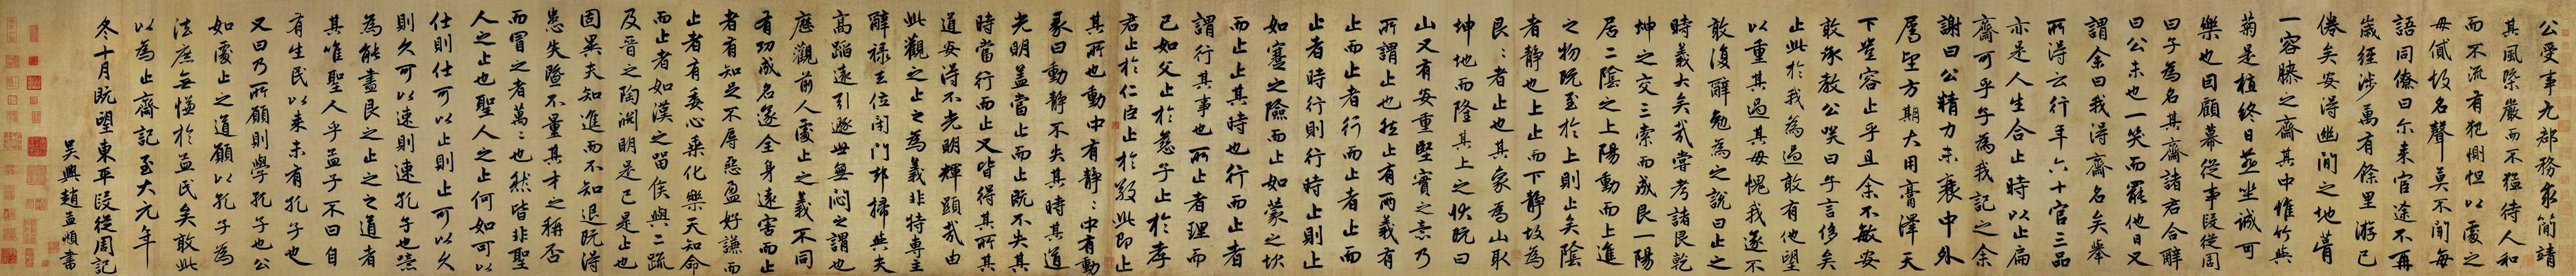 公受事尤郡務最簡靖
其風際嚴而不猛待人和
而不流有犯惻怛以處之
毋貳故名聲莫不聞每
語同僚曰尔来宦途不再
歲經涉萬有餘里游已
倦矣安得幽閒之地葺
一容膝之齋其中惟竹與
菊是植終日燕坐誠可
樂也因顧幕從事段從周
曰子為名其齋諸君合辭
曰公未也一笑而罷他日又
謂余曰我得齋名矣舉
所得云行年六十官三品
亦是人生合止時以止扁
齋可乎子為我記之余
謝曰公精力未衰中外
属望方期大用膏澤天
下豈容止乎且余不敏安
敢承教公笑曰子言侈矣
止此於我為過敢有他望
以重其過其毋愧我遂不
敢復辭勉為之説曰止之
時義大矣哉嘗考諸艮乾
坤之交三索而成艮一陽
居二陰之上陽動而上進
之物既至於上則止矣陰
者静也上止而下静故為
艮〻者止也其象為山取
坤地而隆其上之状既曰
山又有安重堅實之意乃
所謂止也然止有兩義有
止而止者行而止者止而
止者時行則行時止則止
如蹇之險而止如蒙之坎
而止止其時也行而止者
謂行其事也所止者理而
已如父止於慈子止於孝
君止於仁臣止於敬此即止
其所也動中有静〻中有動
彖曰動静不失其時其道
光明蓋當止而止既不失其
時當行而止又皆得其所其
道安得不光明輝顕哉由
此觀之止之為義非特專主
辭禄去位閉門却掃與夫
高蹈遠引遯世無悶之謂也
歷觀前人處止之義不同
有功成名遂全身遠害而止
者有知足不辱惡盈好謙而
止者有委心乗化樂天知命
而止者如漢之留侯與二疏
及晉之陶淵明是已是止也
固異夫知進而不知退既得
患失暨不量其才之稱否
而冒之者萬〻也然皆非聖
人之止也聖人之止何如可以
仕則仕可以止則止可以久
則久可以速則速孔子也嘗
為能盡艮之止之之道者
其唯聖人乎孟子不曰自
有生民以来未有孔子也
又曰乃所願則學孔子也公
如處止之道願以孔子為
法庶無愧於益民矣敢此
以為止齋記至大元年
冬十月既望東平段從周記
吴興趙孟頫書